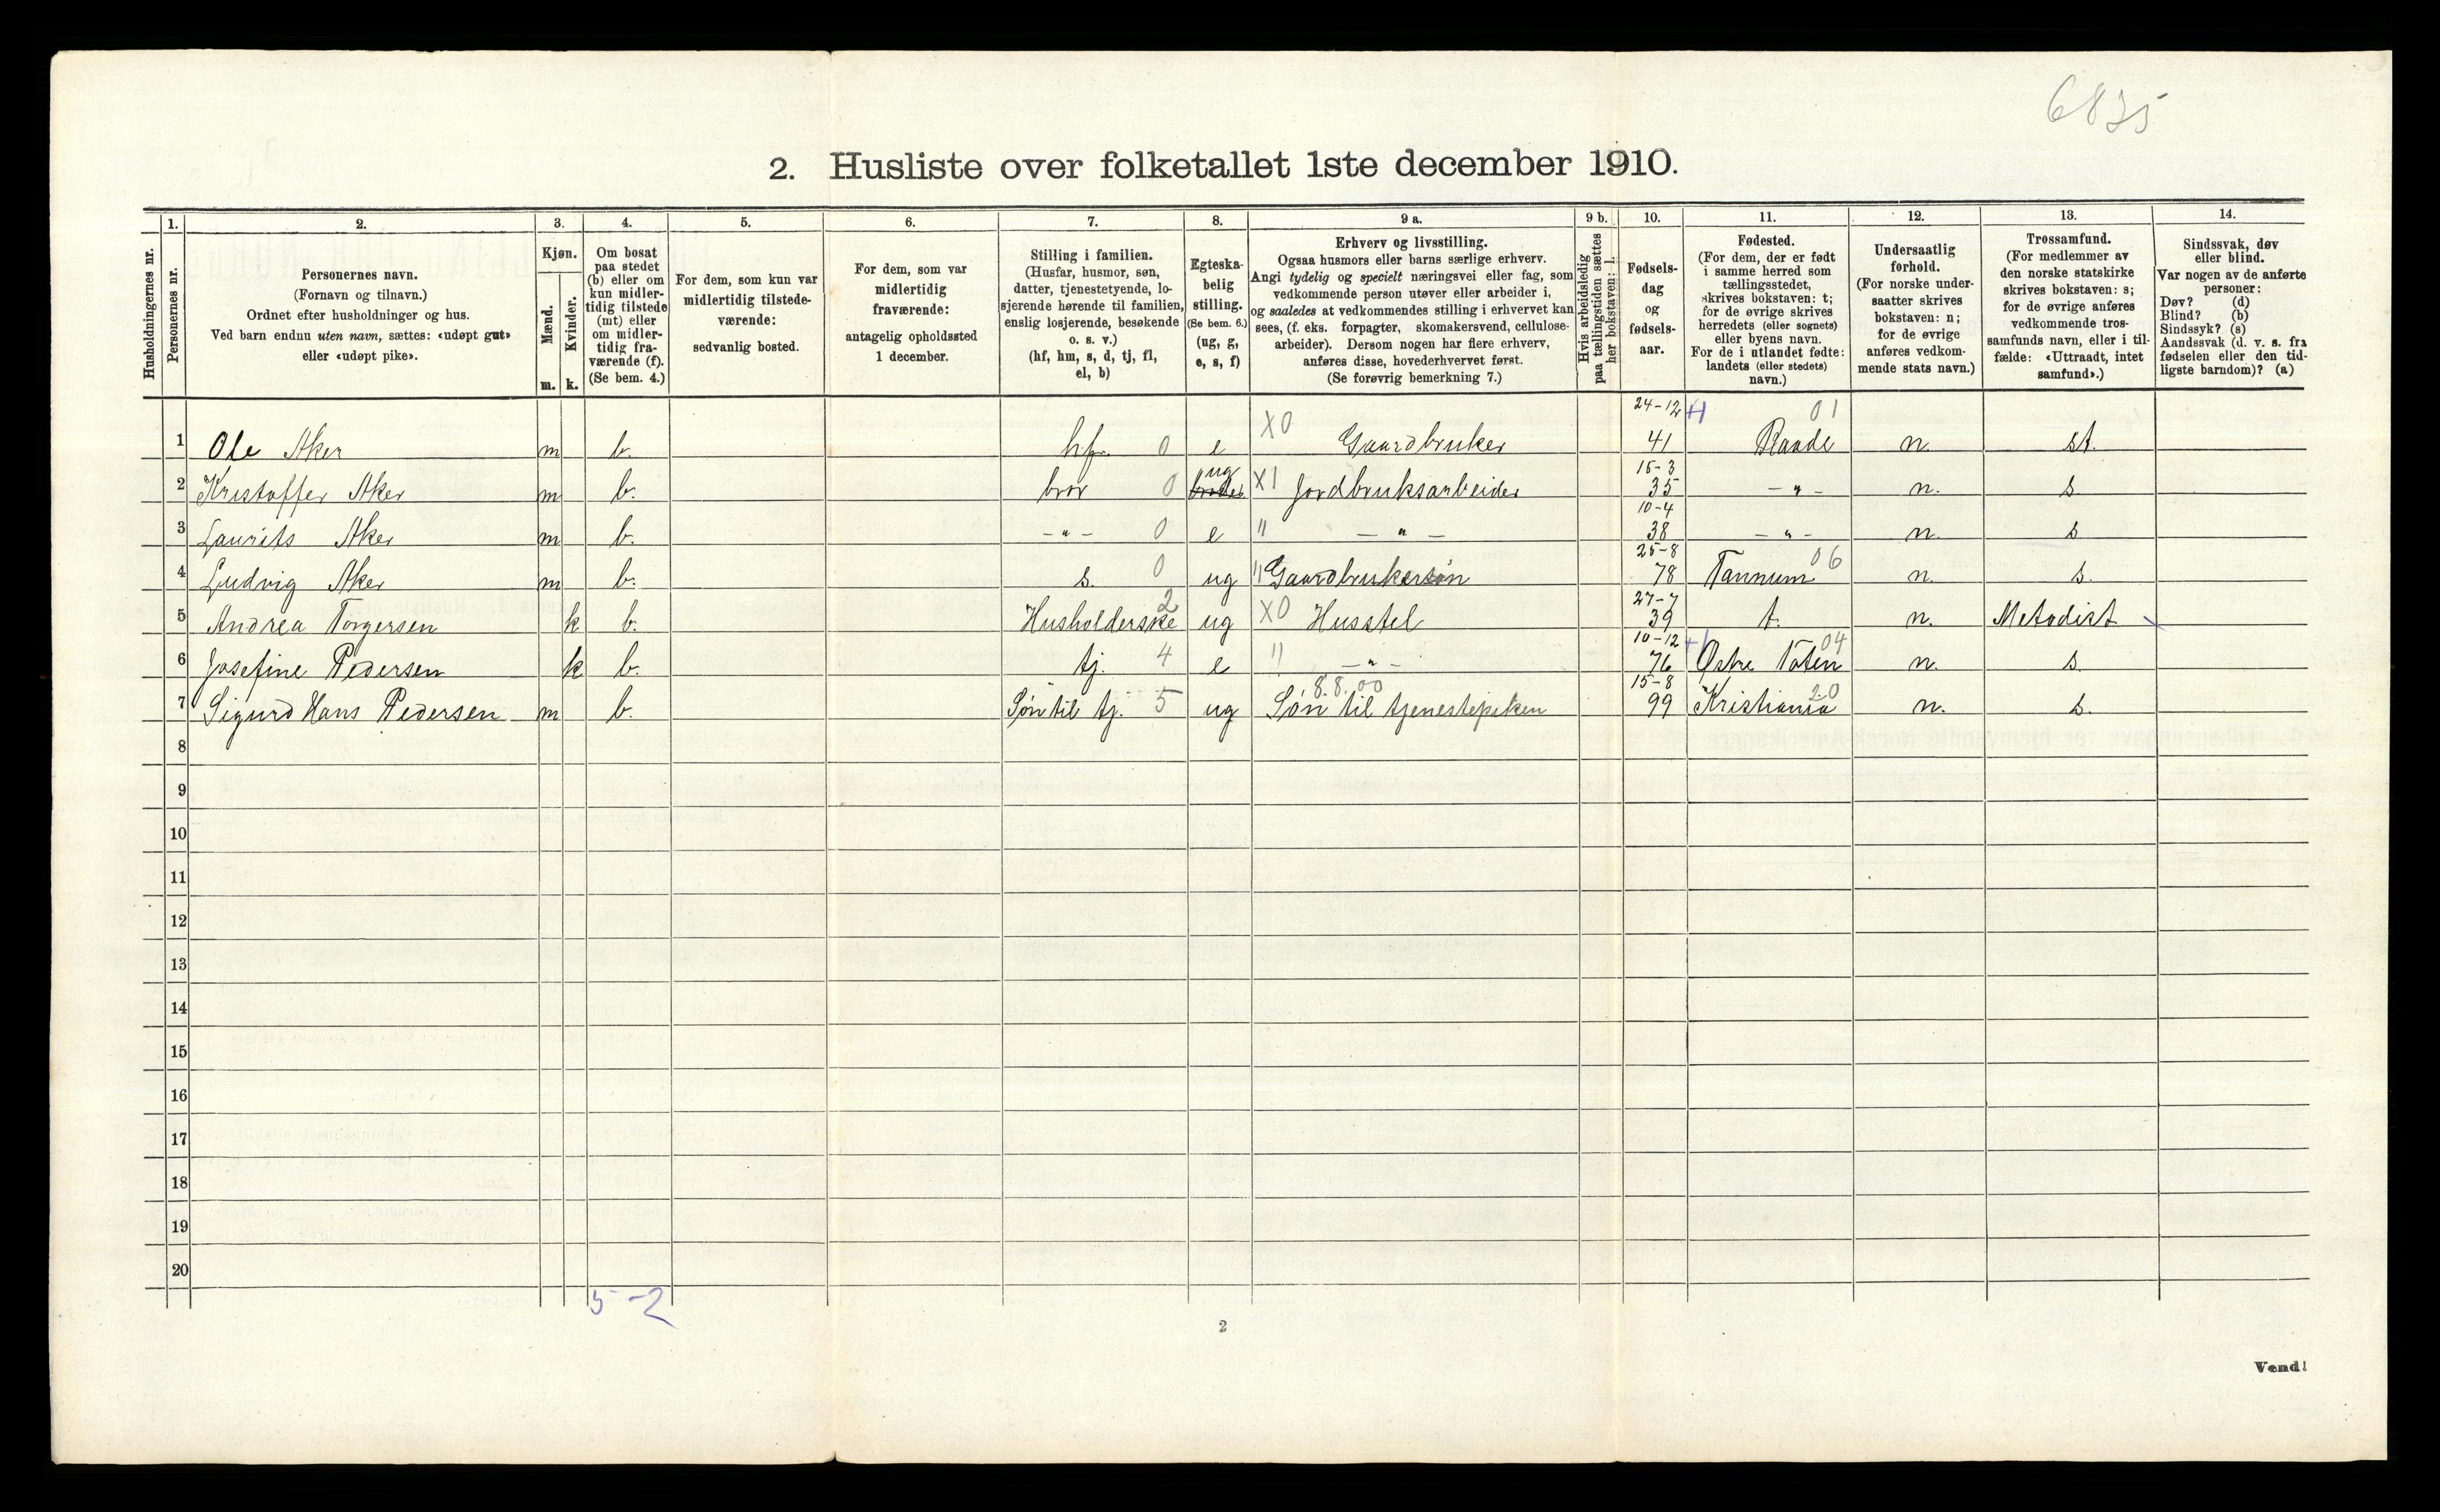 6835
2. Husliste over folketallet 1ste december 1910.
Husholdningernes nr.
1.
Personernes nr.
2.
Personernes navn.
(Fornavn og tilnavn.)
Ordnet efter husholdninger og hus.
Ved barn endnu uten navn, sættes: «udøpt gut»
eller «udøpt pike».
3.
Kjøn.
Mænd.
Kvinder.
m. k.
4.
Om bosat
paa stedet
(b) eller om
kun midler-
tidig tilstede
(mt) eller
om midler-
tidig fra-
værende (f).
(Se bem. 4.)
5.
For dem, som kun var
midlertidig tilstede-
værende:
sedvanlig bosted.
6.
For dem, som var
midlertidig
fraværende:
antagelig opholdssted
1 december.
7.
Stilling i familien.
(Husfar, husmor, søn,
datter, tjenestetyende, lo-
sjerende hørende til familien,
enslig losjerende, besøkende
o. s. v.)
(hf, hm, s, d, tj, fl,
el, b)
8.
Egteska-
belig
stilling.
(Se bem. 6.)
(ug, g,
e, s, f)
9 a.
Erhverv og livsstilling.
Ogsaa husmors eller barns særlige erhverv.
Angi tydelig og specielt næringsvei eller fag, som
vedkommende person utøver eller arbeider i,
og saaledes at vedkommendes stilling i erhvervet kan
sees, (f. eks. forpagter, skomakersvend, cellulose-
arbeider). Dersom nogen har flere erhverv,
anføres disse, hovederhvervet først.
(Se forøvrig bemerkning 7.)
9 b.
Hvis arbeidsledig
paa tællingstiden sættes
her bokstaven: l.
10.
Fødsels-
dag
og
fødsels-
aar.
11.
Fødested.
(For dem, der er født
i samme herred som
tællingsstedet,
skrives bokstaven: t;
for de øvrige skrives
herredets (eller sognets)
eller byens navn.
For de i utlandet fødte:
landets (eller stedets)
navn.)
12.
Undersaatlig
forhold.
(For norske under-
saatter skrives
bokstaven: n;
for de øvrige
anføres vedkom-
mende stats navn.)
13.
Trossamfund.
(For medlemmer av
den norske statskirke
skrives bokstaven: s;
for de øvrige anføres
vedkommende tros-
samfunds navn, eller i til-
fælde: «Uttraadt, intet
samfund».)
14.
Sindssvak, døv
eller blind.
Var nogen av de anførte
personer:
Døv? (d)
Blind? (b)
Sindssyk? (s)
Aandssvak (d. v. s. fra
fødselen eller den tid-
ligste barndom)? (a)
1 Ole Aker m b. hf. 0 e X0 Gaardbruker 24-12 41 +1 Raade 01 n. st.
2 Kristoffer Aker m b. bror 0 ug X1 Jordbruksarbeider 15-3 35 -"- n. s.
3 Laurits Aker m b. -"- 0 e " -"- 10-4 38 -"- n. s
4 Ludvig Aker m b. s. 0 ug " Gaardbrukersøn 25-8 78 Tannum 06 n. s.
5 Andrea Torgersen k b. Husholderske 2 ug X0 Husstel 27-7 39 t. n. Metodist
6 Josefine Pedersen k b. tj. 4 e " -"- 10-12 76 +1 Østre Toten 04 n. s.
7 Sigurd Hans Pedersen m b. Søn til tj. 5 ug 8.8.00 Søn til tjenestepiken 15-8 99 Kristiania 20 n. s.
8
9
10
11
12
13
14
15
16
17
18
19
20
5-2
2
Vend!